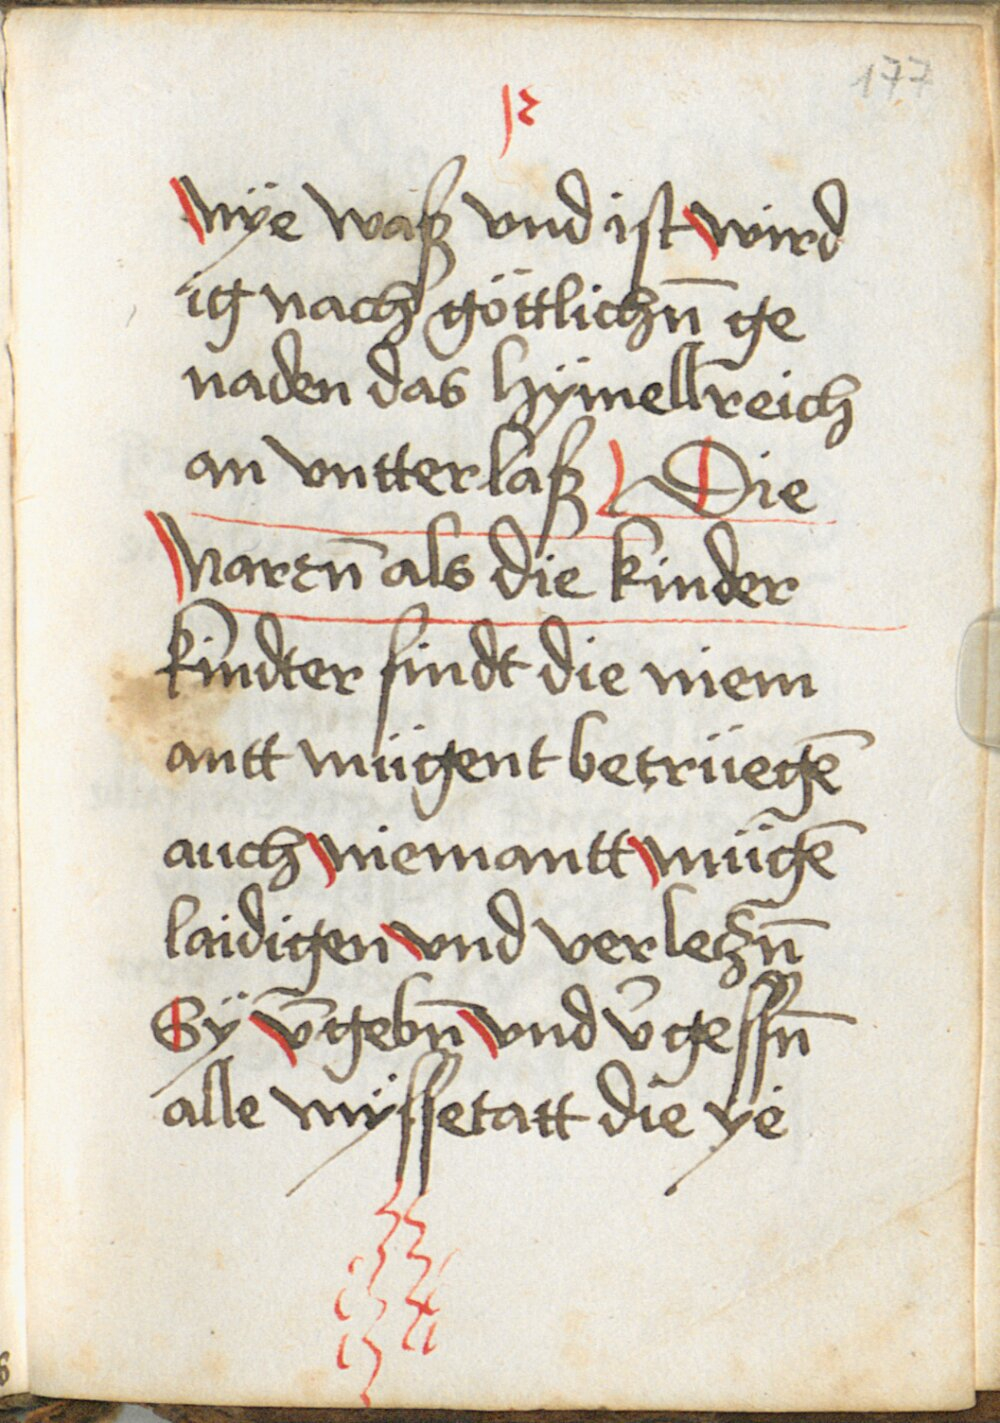 177
12
nÿe waß vnd ist wird
ig nach göttlichn̄ ge
naden das hÿmellreich
an vntterlaß Die
Narrn̄ als die kinder
kindter sindt die niem
antt mügent betrüegē
auch niemantt mügē
laidigen vnd verleczn̄
Sÿ v̄gebn̄ vnd v̄gessn̄
alle mÿssetatt die ye